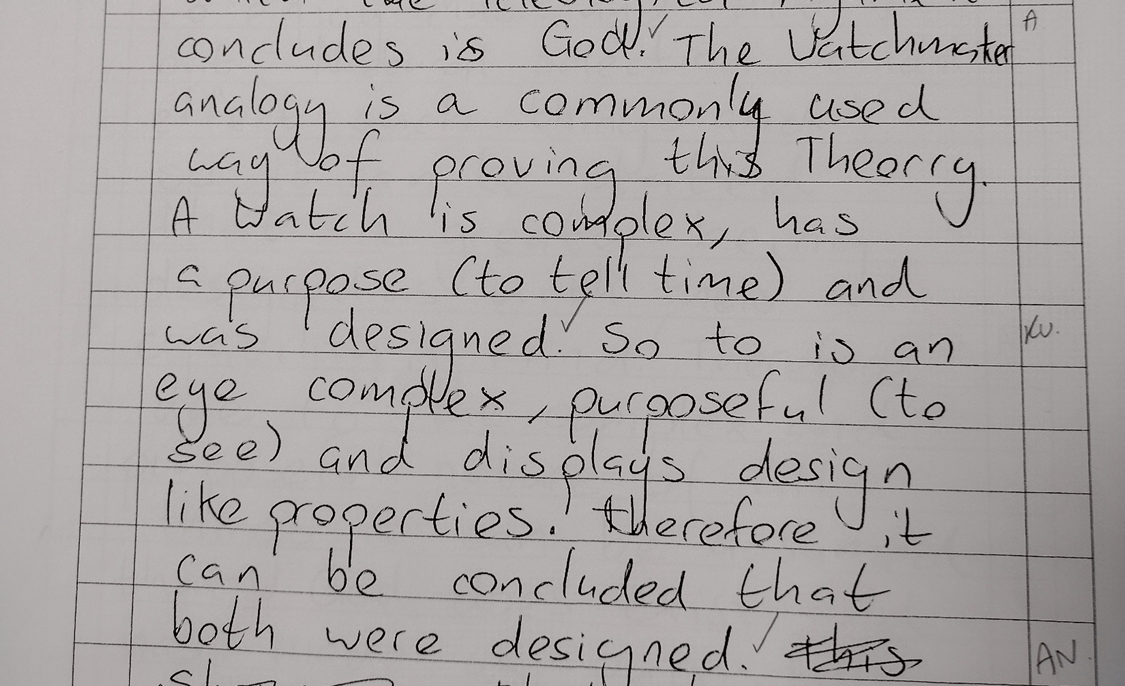 concludes is God. The Watchmaker A
analogy is a commonly used
way of proving this Theorry.
A Watch is complex, has
a purpose (to tell time) and
was designed. So to is an KU.
eye complex, purposeful (to
see) and displays design
like properties. therefore it
can be concluded that
both were designed. this AN